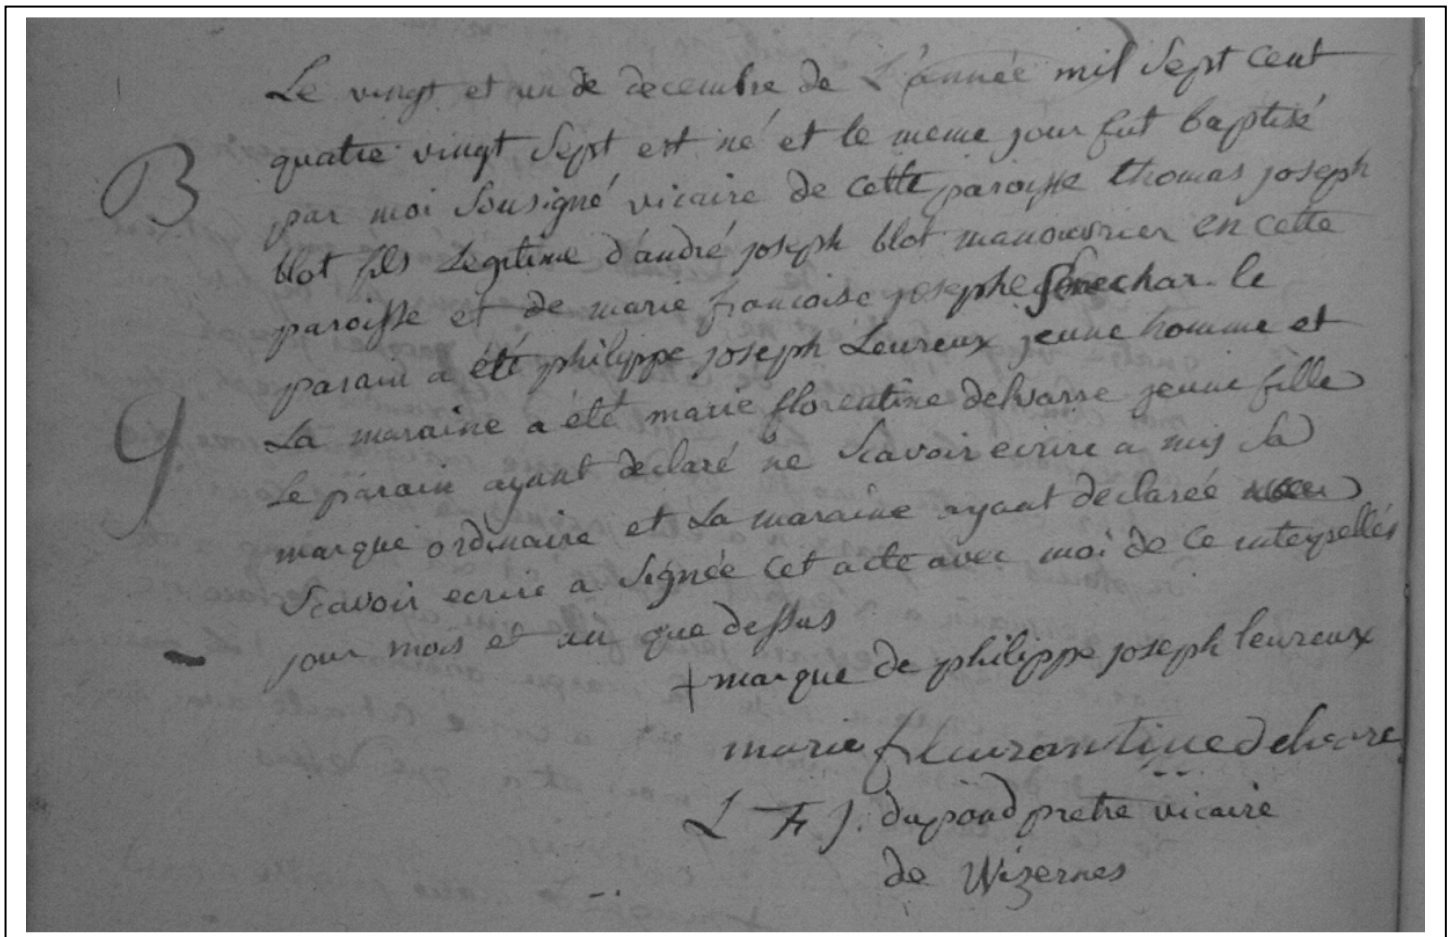 Le vingt et un de decembre de L'année mil Sept Cent
quatre vingt Sept est né et le meme jour fut baptisé
B
par moi Sousigné vicaire de cette paroisse thomas joseph
blot fils Legitime d'andré joseph blot manouvrier en cette
paroisse et de marie francoise josephe Senechar le
parain a été philippe joseph Leureux jeune homme et
La maraine a été marie florentine delvarre jeune fille
9
Le parain ayant declaré ne Scavoir ecrire a mis Sa
marque ordinaire et La maraine ayant declarée
Scavoir ecrire a Signée Cet acte avec moi de Ce interpellés
jour mois et an que dessus
+ marque de philippe joseph leureux
marie fleurantine delvare
L F J. dupond pretre vicaire
de Wizernes